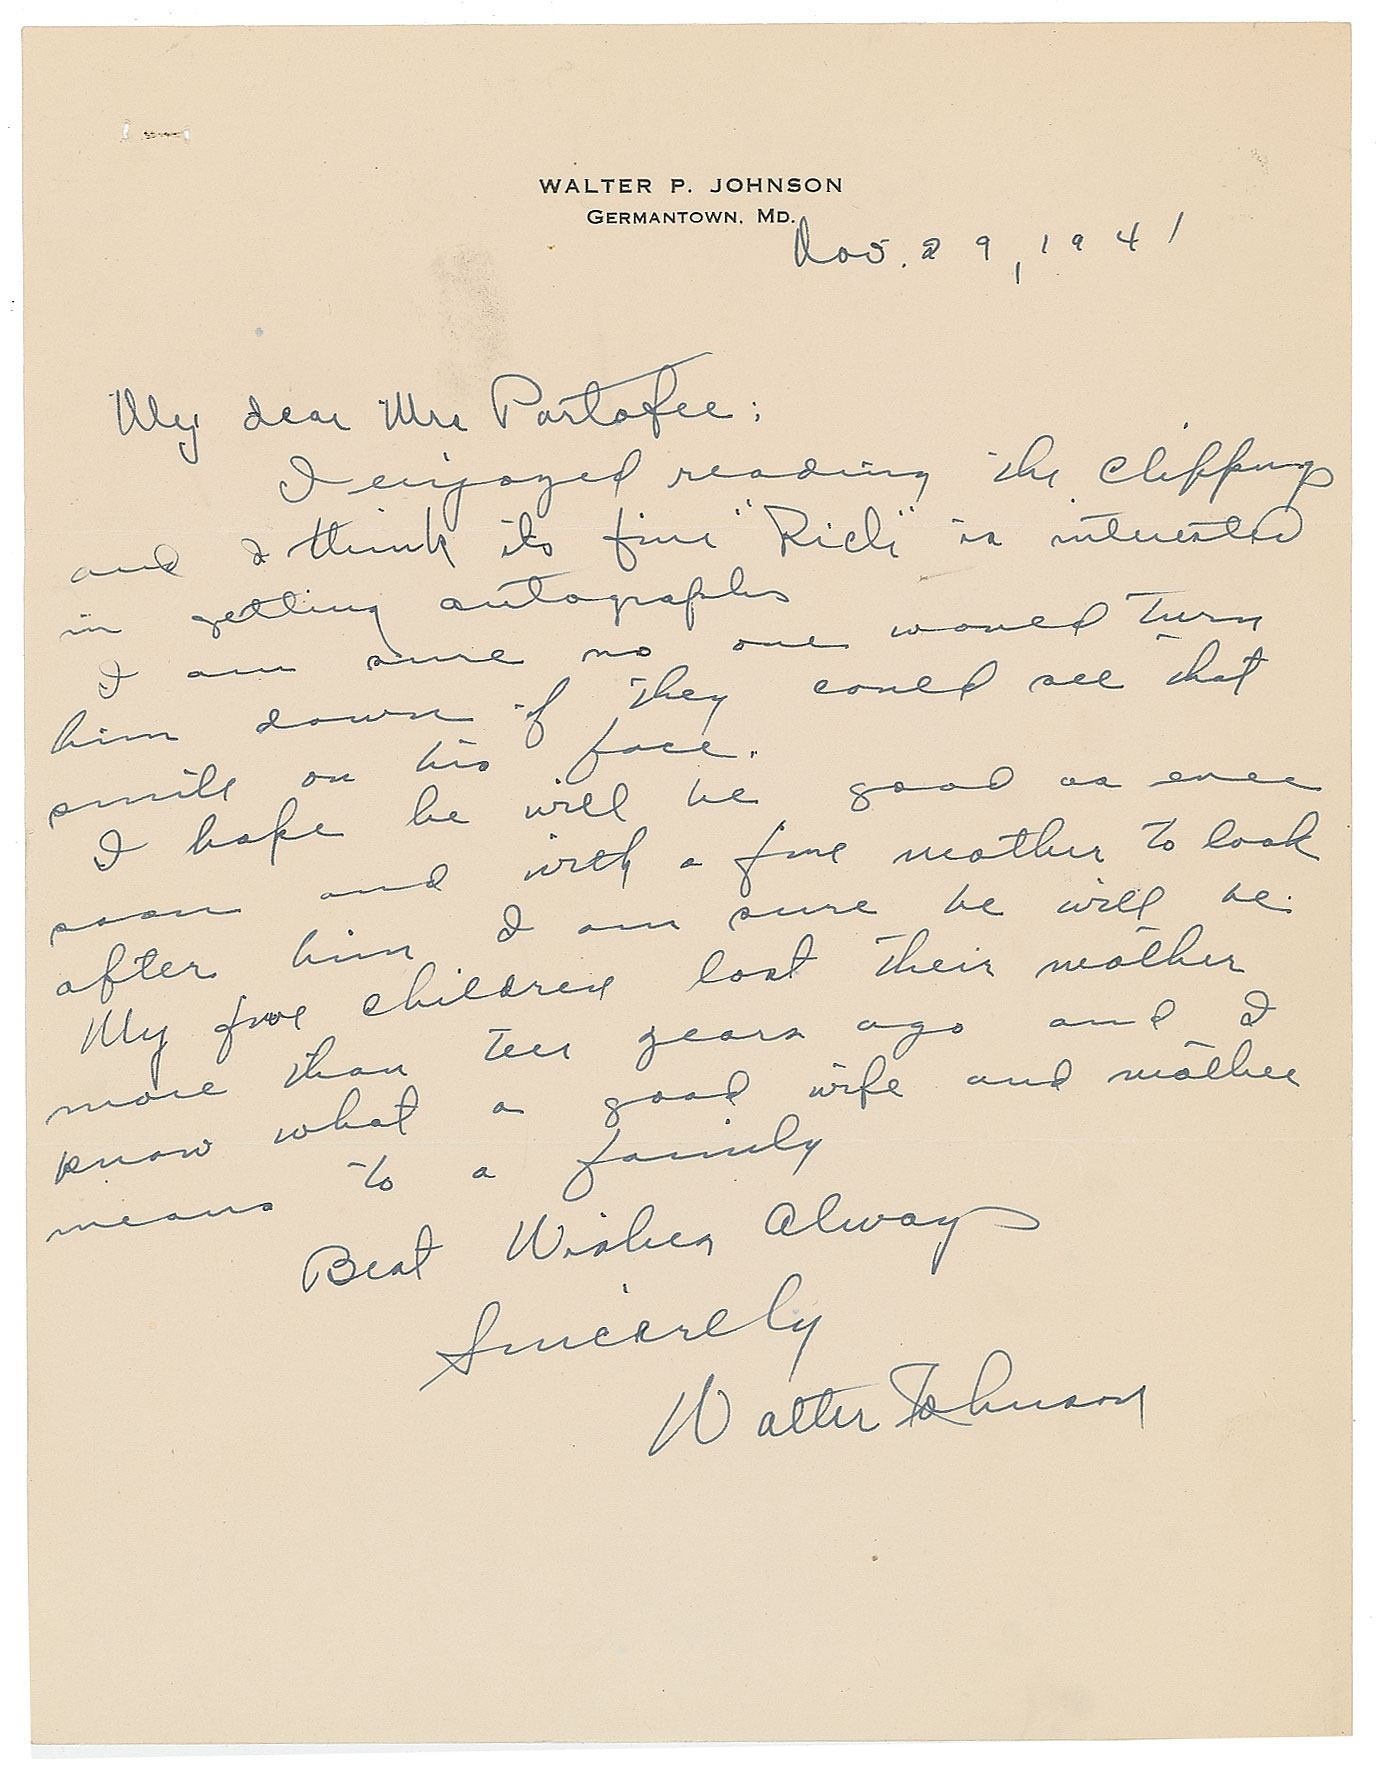 WALTER P. JOHNSON
GERMANTOWN, MD.
Nov. 29, 1941
My dear Mrs Portafee;
I enjoyed reading the clippings
and I think its fine "Rich" is interested
in getting autographs
I am sure no one would turn
him down if they could see that
smile on his face.
I hope he will be good as ever
soon and with a fine mother to look
after him I am sure he will be.
My five children lost their mother
more than ten years ago and I
know what a good wife and mother
means to a family
Best Wishes Always
Sincerely
Walter Johnson